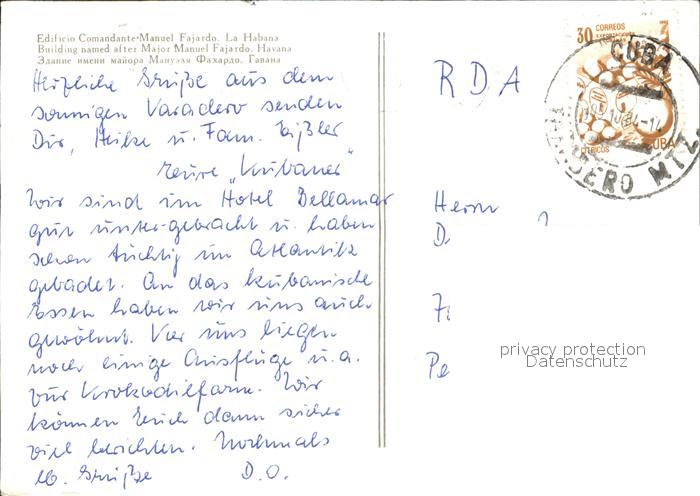 Edificio Comandante·Manuel Fajardo. La Habana
Building named after Major Manuel Fajardo. Havana
Здание имени майора Мануэля Фахардо. Гавана
Herzliche Grüße aus dem
sonnigen Varadero senden
Dir, Heike u. Fam.
Eure "Kubaner"
Wir sind im Hotel Bellamar
gut unter-gebracht u. haben
schon tüchtig im Atlantik
gebadet. An das kubanische
Essen haben wir uns auch
gewöhnt. Vor uns liegen
noch einige Ausflüge u.a.
zur Krokodilfarm. Wir
können Euch dann sicher
viel berichten. Nochmals
lb. Grüße D.O.
RDA
Herrn
D.
Pe
30 CORREOS
CUBA
CITRICOS CUBA
privacy protection
Datenschutz